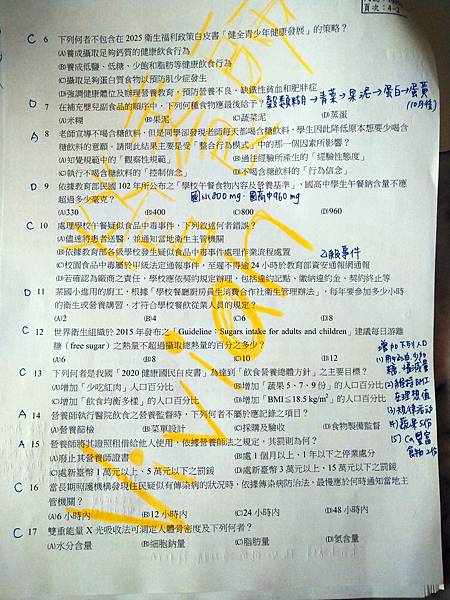 頁次:4-
C 6 下列何者不包含在 2025 衛生福利政策白皮書「健全青少年健康發展」的策略?
(A)養成攝取足夠鈣質的健康飲食行為
(B)養成低鹽、低糖、少飽和脂肪等健康飲食行為
(C)攝取足夠蛋白質食物以預防肌少症發生
(D)強調健康體位及辦理營養教育,預防營養不良、缺鐵性貧血和肥胖症
D 7 在補充嬰兒副食品的順序中,下列何種食物應最後給予? 穀類精→青菜→果泥→蛋白→蛋黃
(A)米糊 (B)果泥 (C)蔬菜泥 (D)蒸蛋 (10月後)
A 8 老師宣導不喝含糖飲料,但是同學卻發現老師每天都喝含糖飲料,學生因此降低原本想要少喝含
糖飲料的意願。請問此結果主要是受「整合行為模式」中的那一個因素所影響?
(A)知覺規範中的「觀察性規範」 (B)過往經驗所產生的「經驗性態度」
(C)執行不喝含糖飲料的「控制信念」 (D)不喝含糖飲料的「行為信念」
D 9 依據教育部民國 102 年所公布之「學校午餐食物內容及營養基準」,國高中學生午餐鈉含量不應
超過多少毫克? 國小800mg、國高中960mg
(A)330 (B)400 (C)800 (D)960
C 10 處理學校午餐疑似食品中毒事件,下列敘述何者錯誤?
(A)儘速將患者送醫,並通知當地衛生主管機關
(B)依據教育部各級學校發生疑似食品中毒事件處理作業流程處置 乙級事件
(C)校園食品中毒屬於甲級法定通報事件,至遲不得逾 24 小時於教育部資安通報網通報
(D)若確認為廠商之責任,學校應依契約規定辦理,包括違約記點、繳納違約金、契約終止等
D 11 某國小進用的廚工,根據「學校餐廳廚房員生消費合作社衛生管理辦法」,每年要參加多少小時
的衛生或營養講習,才符合學校餐飲從業人員的規定?
(A)2 (B)4 (C)6 (D)8
C 12 世界衛生組織於 2015 年發布之「Guideline:Sugars intake for adults and children」建議每日游離
糖(free sugar)之熱量不超過攝取總熱量的百分之多少?
(A)6 (B)8 (C)10 (D)12
C 13 下列何者是我國「2020 健康國民白皮書」為達到「飲食營養總體方針」之主要目標?
(A)增加「少吃紅肉」人口百分比 (B)增加「蔬果 5、7、9 份」的人口百分比
(C)增加「飲食均衡多樣」的人口百分比 (D)增加「BMI≦18.5 kg/m²」的人口百分比
增加下列人口
(3)規律活動
(4)蔬果5份
A 14 營養師執行醫院飲食之營養監督時,下列何者不屬於應記錄之項目?
(A)營養篩檢 (B)菜單設計 (C)採購及驗收 (D)食物製備監督
A 15 營養師將其證照租借給他人使用,依據營養師法之規定,其罰則為何?
(A)廢止其營養師證書 (B)處 1 個月以上、1 年以下之停業處分
(C)處新臺幣 1 萬元以上、5 萬元以下之罰鍰 (D)處新臺幣 3 萬元以上、15 萬元以下之罰鍰
C 16 當長期照護機構發現住民疑似有傳染病的狀況時,依據傳染病防治法,最慢應於何時通知當地主
管機關?
(A)6 小時內 (B)12 小時內 (C)24 小時內 (D)48 小時內
C 17 雙重能量 X 光吸收法可測定人體骨密度及下列何者?
(A)水分含量 (B)細胞鈉量 (C)脂肪量 (D)氮含量
Vivian